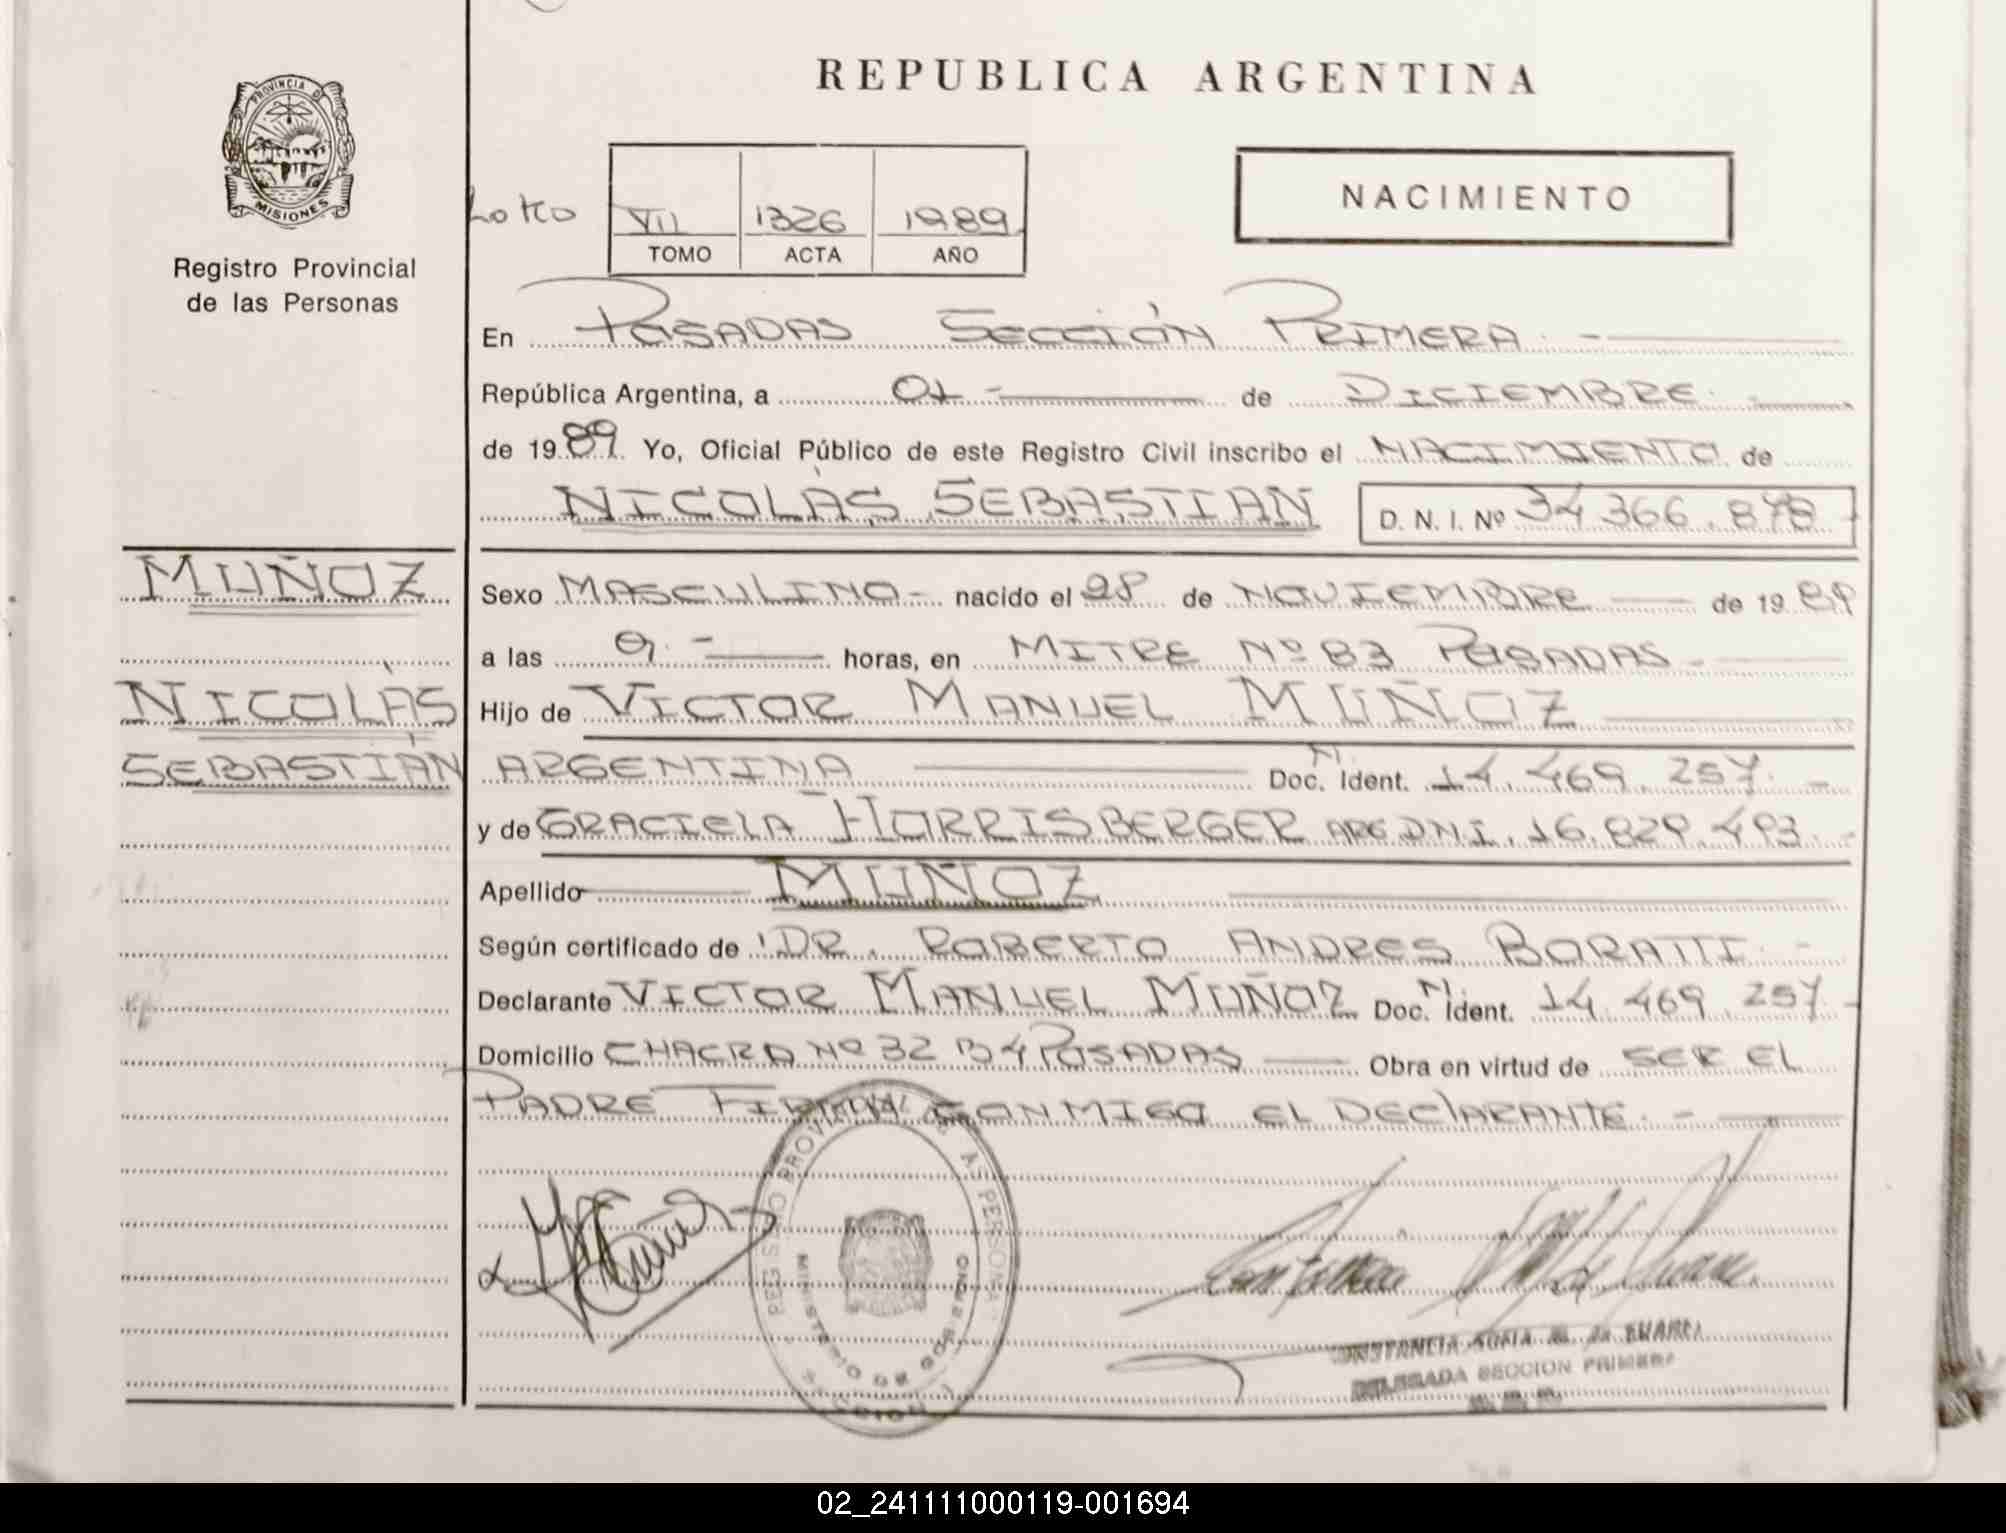 PROVINCIA D
MISIONES
Registro Provincial
de las Personas
REPUBLICA ARGENTINA
NACIMIENTO
VII 1326 1989
TOMO ACTA AÑO
En POSADAS SECCIÓN PRIMERA. -
República Argentina, a 01 - de DICIEMBRE.
de 1989. Yo, Oficial Público de este Registro Civil inscribo el NACIMIENTO de
NICOLÁS SEBASTIAN D. N. I. Nº 34 366.878
MUÑOZ
NICOLÁS
SEBASTIÁN
Sexo MASCULINO - nacido el 28 de NOVIEMBRE de 19 89
a las 9. - horas, en MITRE Nº 83 POSADAS -
Hijo de VICTOR MANUEL MUÑOZ
ARGENTINA Doc. N. Ident. 14. 469. 257. -
y de GRACIELA HORRISBERGER ARG. DNI. 16.829.493. -
Apellido MUÑOZ
Según certificado de DR. ROBERTO ANDRES BORATTI. -
Declarante VICTOR MANUEL MUÑOZ Doc. N. Ident. 14. 469. 257. -
Domicilio CHACRA Nº 32 POSADAS Obra en virtud de SER EL
PADRE FIRMA CONMIGO EL DECLARANTE. -
MINISTERIO DE GOBIERNO
CONSTANCIA SOFIA M. de DUARTE
DELEGADA SECCION PRIMERA
02_241111000119-001694